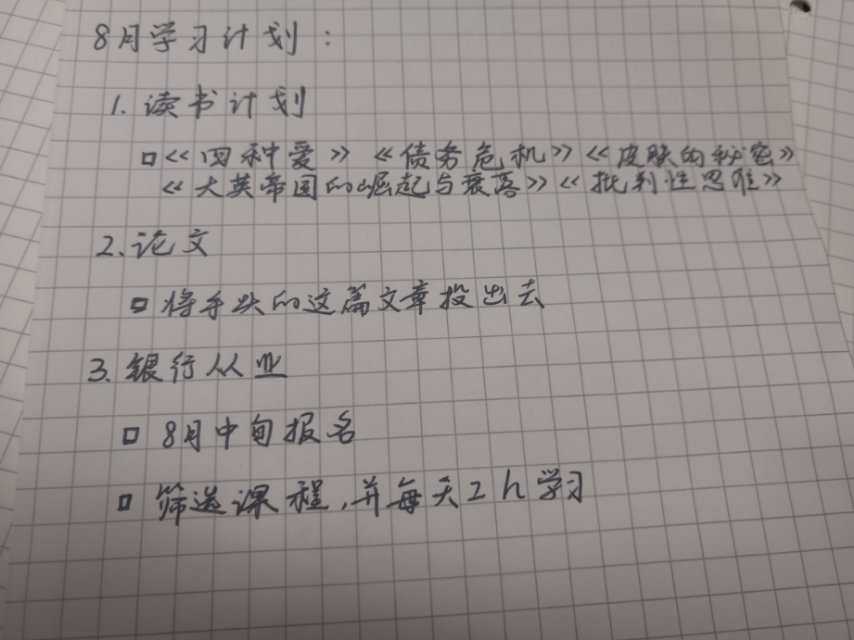 8月学习计划：
1. 读书计划
《四种爱》《债务危机》《皮肤的秘密》
《大英帝国的崛起与衰落》《批判性思维》
2. 论文
将手头的这篇文章投出去
3. 银行从业
8月中旬报名
筛选课程，并每天2h学习